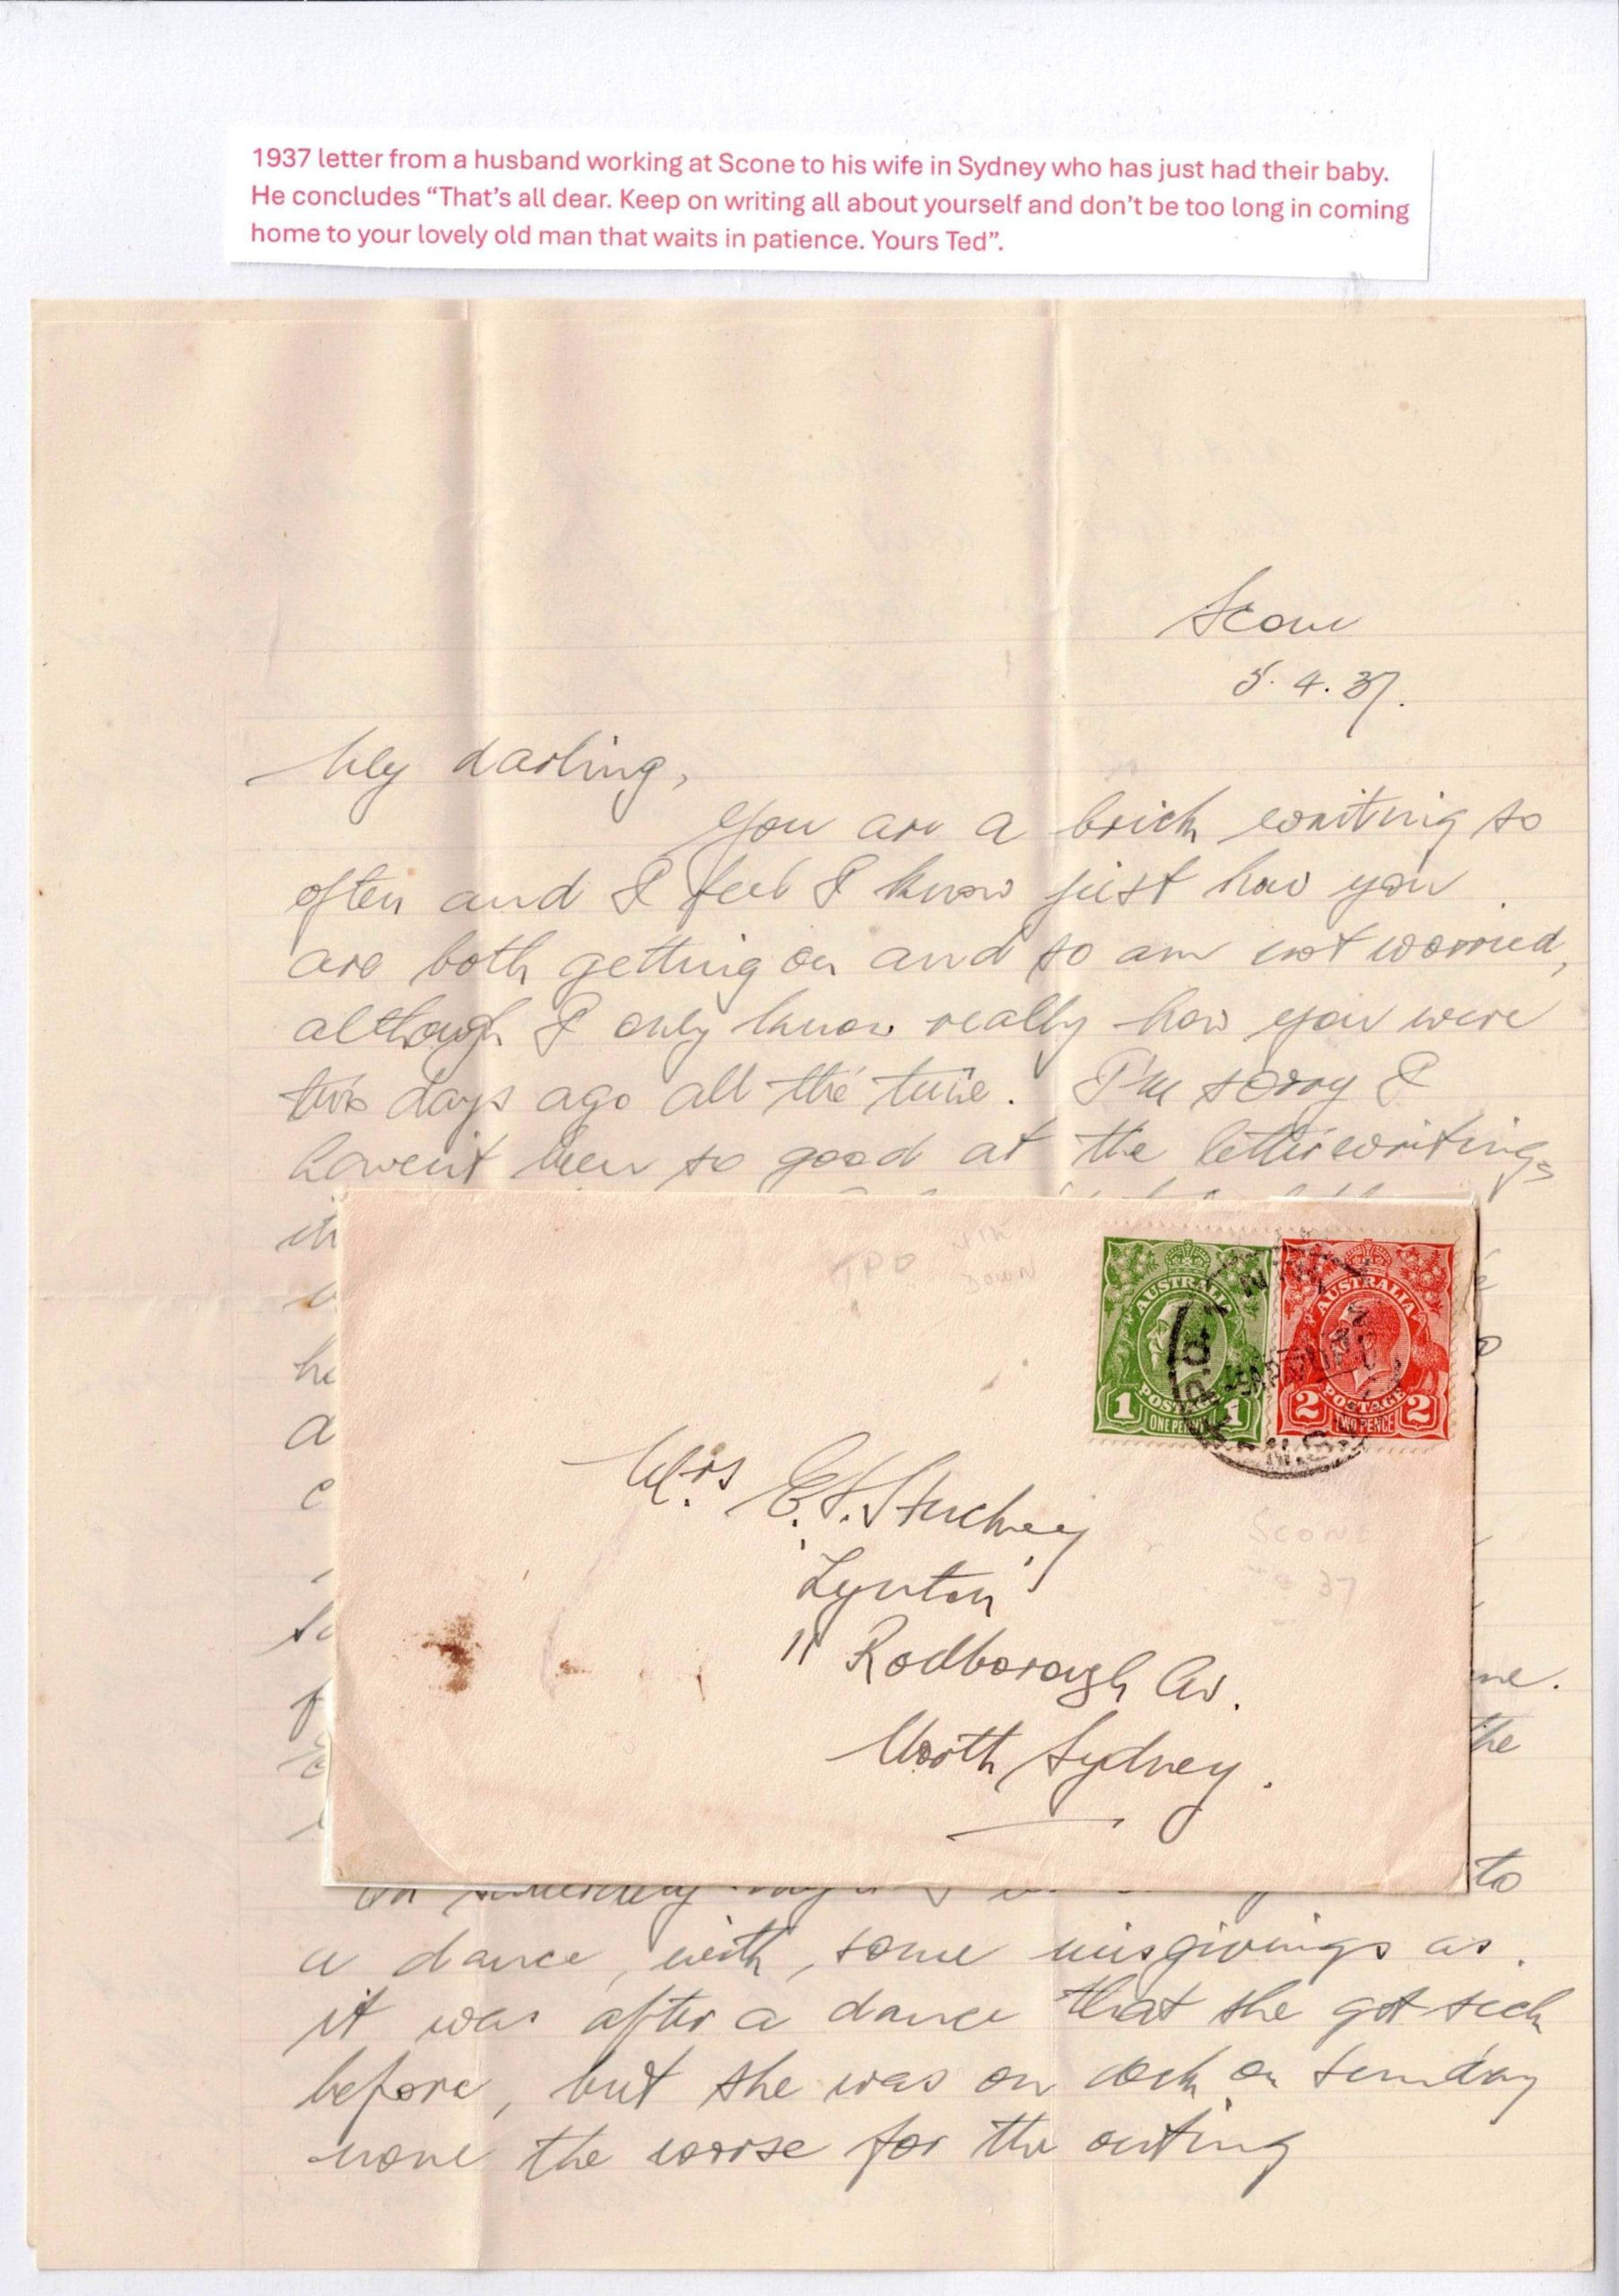 1937 letter from a husband working at Scone to his wife in Sydney who has just had their baby.
He concludes “That’s all dear. Keep on writing all about yourself and don’t be too long in coming
home to your lovely old man that waits in patience. Yours Ted”.
Scone
5.4.37.
My darling,
You are a brick writing so
often and I feel I know just how you
are both getting on and so am not worried,
although I only know really how you were
two days ago all the time. I'm sorry I
haven't been so good at the letterwriting,
TPO
down
AUSTRALIA
AUSTRALIA
1 POSTAGE 1
ONE PENNY
2 POSTAGE 2
TWO PENCE
T.P.O.
N.S.W.
Mrs E.H. Stuckey
'Lynton'
11 Rodborough Av.
North Sydney.
SCONE
37
me.
the
to
a dance, with, some misgivings as
it was after a dance that she got sick
before, but she was on deck on Sunday
none the worse for the outing